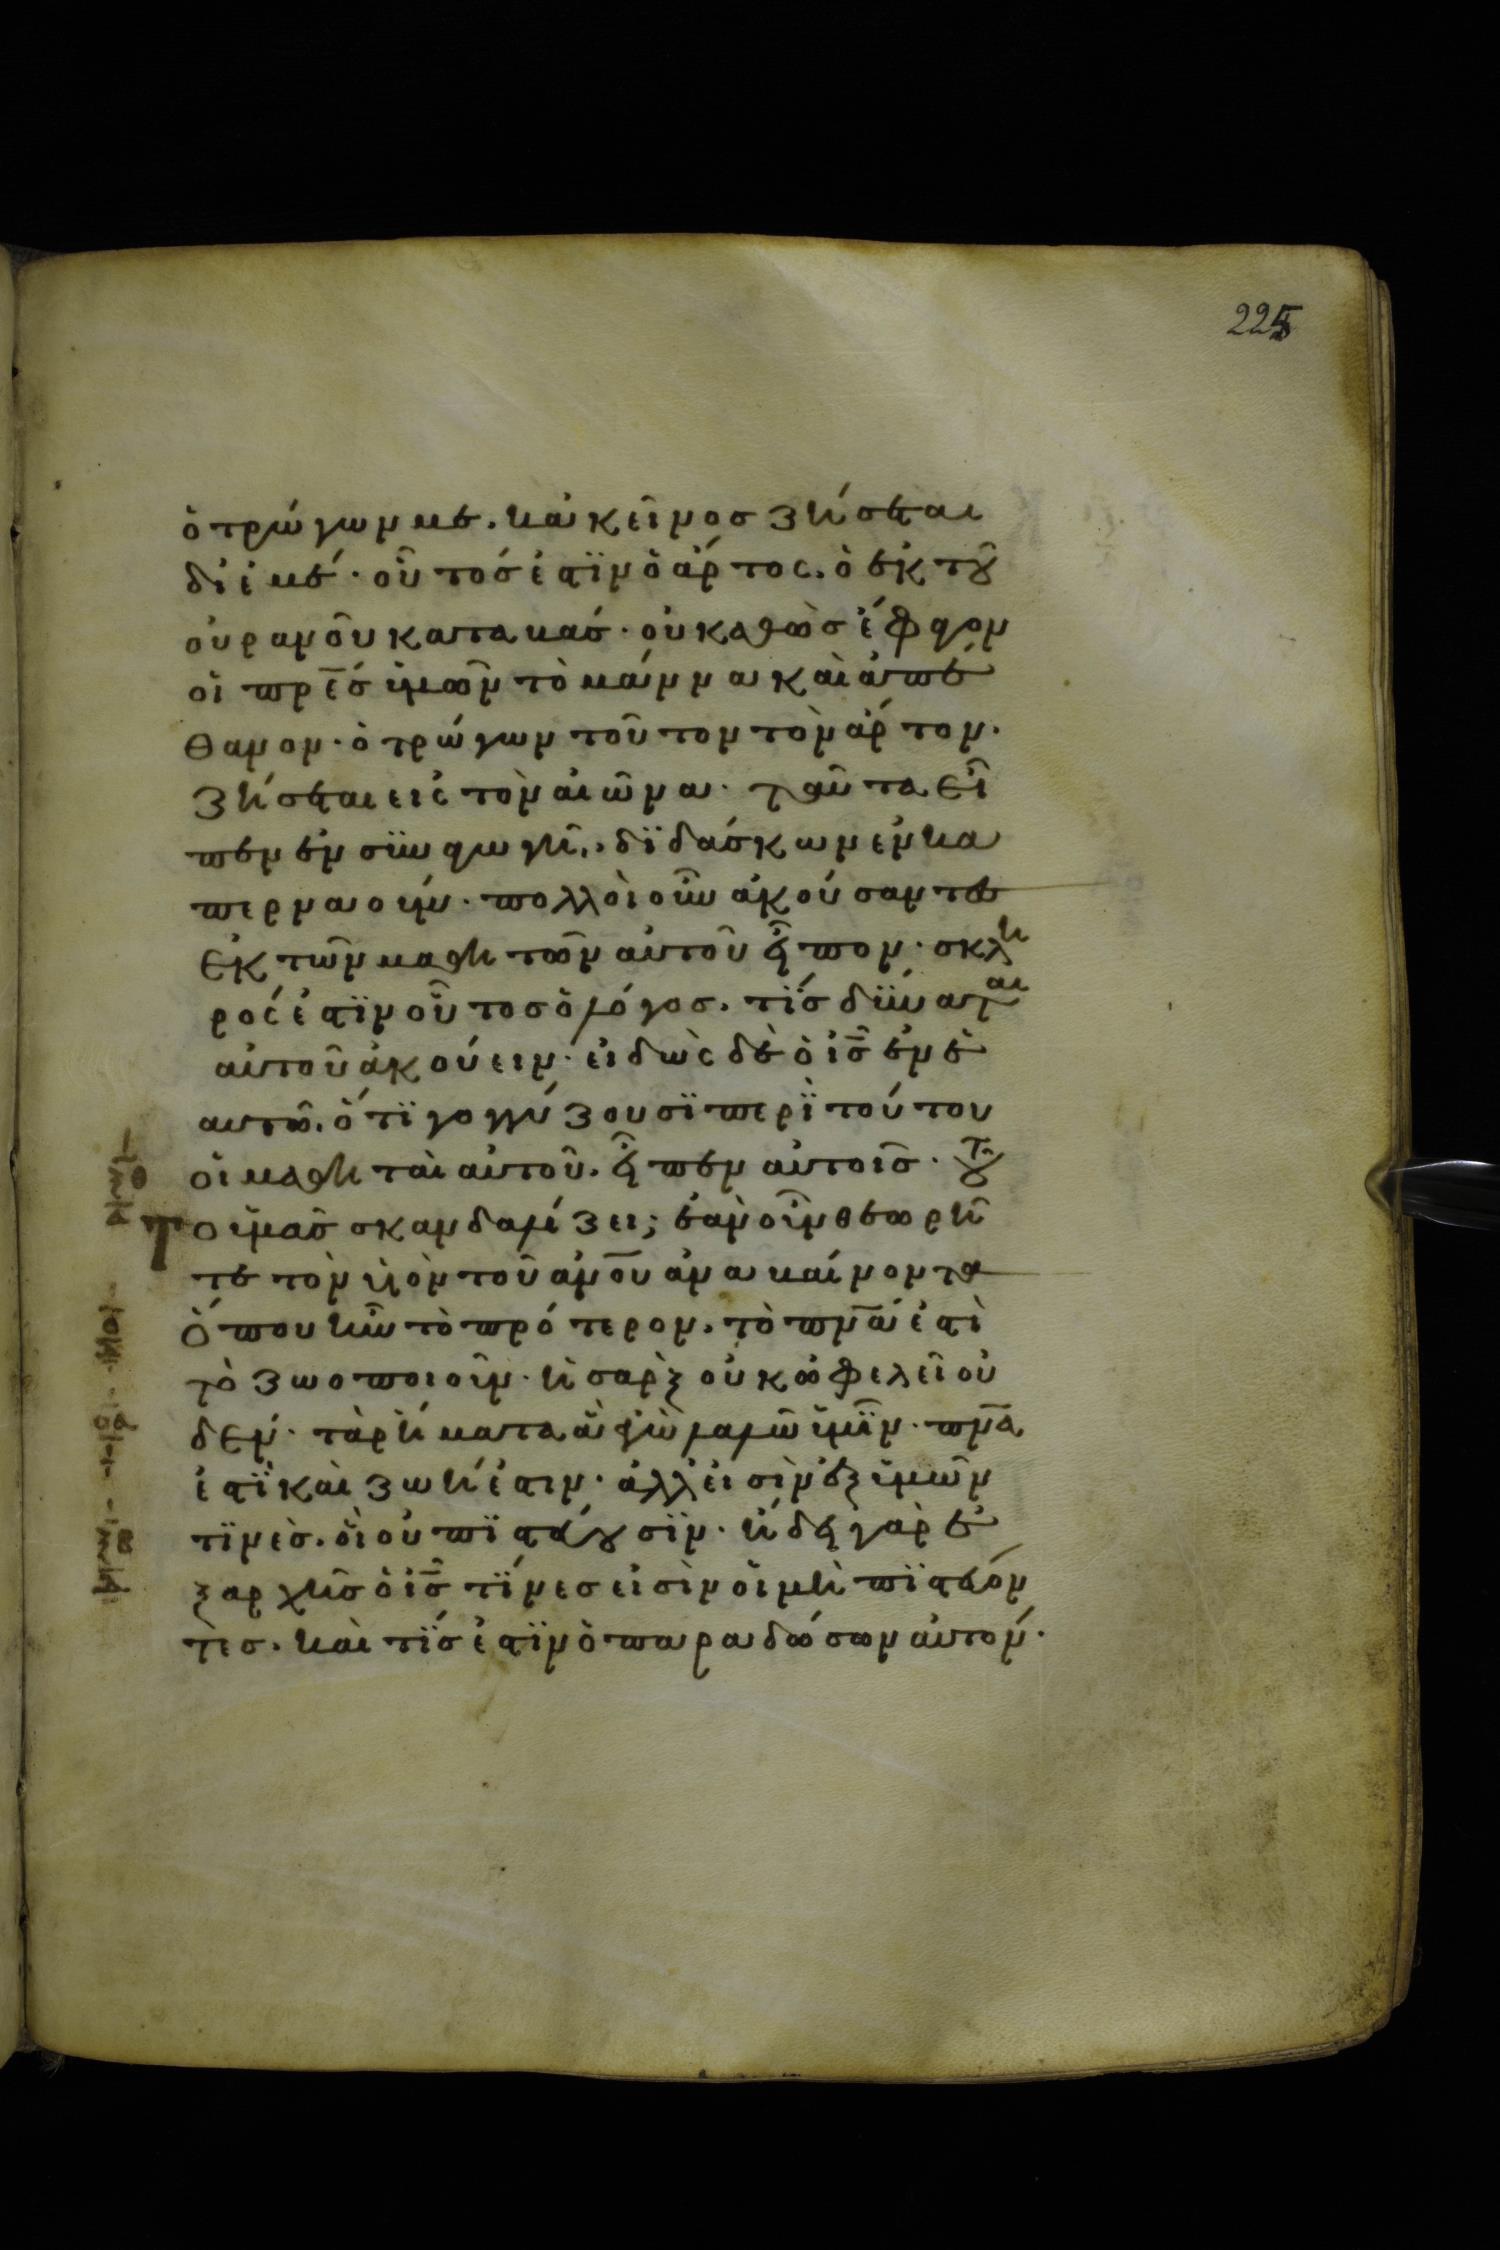 225
ὁ τρώγων με. κακεῖνος ζήσεται
δι ἐμέ. οὗτός ἐστϊν ὁ ἄρτος. ὁ ἐκ τοῦ
οὐρανοῦ καταβάς. οὐ καθὼσ ἔφαγον
οἱ πρ̅ε̅σ ὑμῶν τὸ μάννα καὶ ἀπέ
θανον. ὁ τρώγων τοῦτον τὸν ἄρτον.
ζήσεται εἰς τὸν αἰῶνα. ταῦτα εἶ
πεν ἐν σϋναγωγῆ. δϊδάσκων ἐν κα
περναοὺμ. πολλοὶ οὖν ἀκούσαντες
ἐκ τῶν μαθητῶν αὐτοῦ εἶπον. σκλη
ρός ἐστϊν οὗτοσ ὁ λόγοσ. τίσ δϋναται
αὐτοῦ ἀκούειν. εἰδὼς δὲ ὁ ι̅σ̅ ἐν ἑ
αυτῶ. ὅτϊ γογγύζουσϊ περϊ τούτου
οἱ μαθηταὶ αὐτοῦ. εἶπεν αὐτοῖσ. τοῦ
Το ὑμᾶσ σκανδαλίζει; ἐὰν οὖν θεωρῆ
τε τὸν υἱὸν τοῦ ἀν̅ο̅υ ἀναβαίνοντα
ὅπου ἦν τὸ πρότερον. τὸ πν̅α̅ ἐστὶ
τὸ ζωοποιοῦν. ἡ σαρὲξ οὐκ ὠφελεῖ οὐ
δέν. τὰ ῥήματα ἃ ἐγὼ λαλῶ ὑμϊν. πν̅α̅
ἐστϊ καὶ ζωή ἐστιν. ἀλλ εἰσὶν ἐξ ὑμῶν
τϊνὲσ. οἳ οὐ πϊστεύουσϊν. ἤδει γὰρ ἐ
ξαρχῆσ ὁ ι̅σ̅ τϊνεσ εἰσὶν οἱ μὴ πϊστεύον
τεσ. καὶ τϊσ ἐστϊν ὁ παραδώσων αὐτόν.